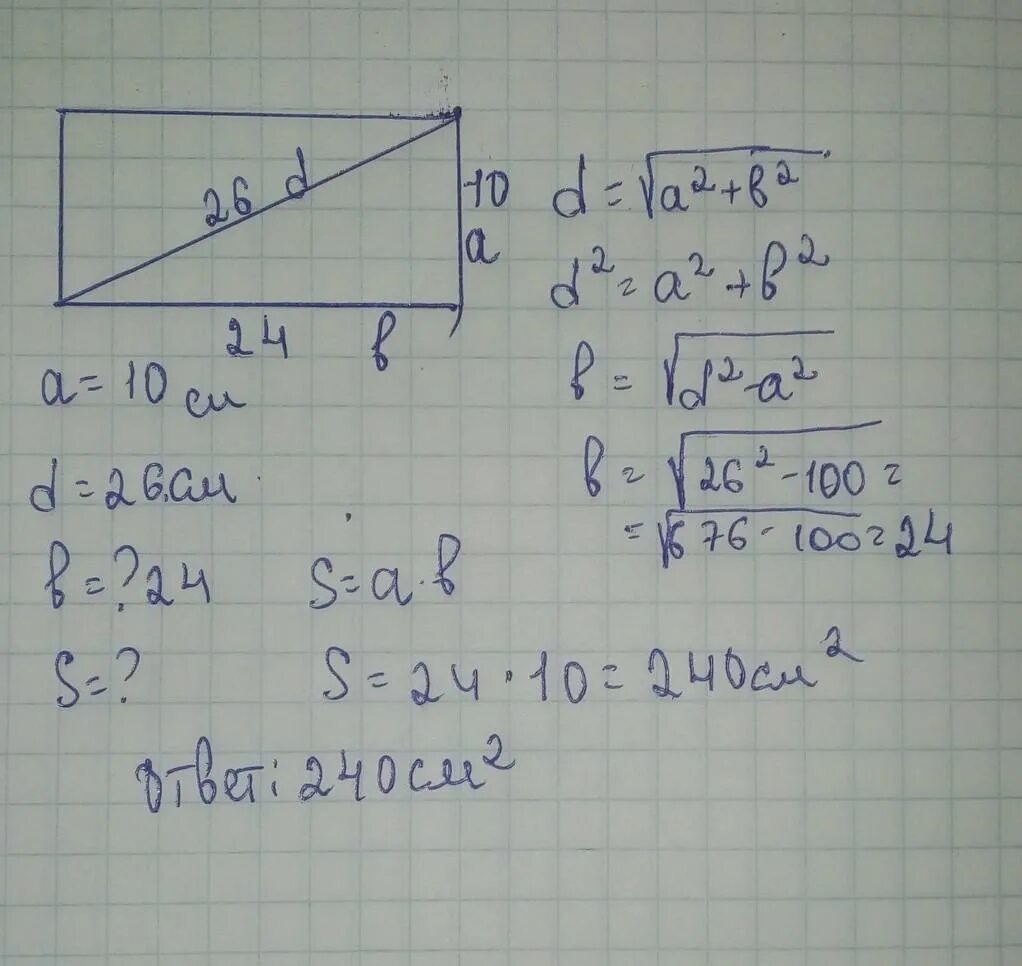 26 d
10
a
24 в
a = 10 см
d = 26 см.
в = ? 24
S = ?
d = √a² + в²
d² = a² + в²
в = √d² - a²
в = √26² - 100 =
= √676 - 100 = 24
S = a · в
S = 24 · 10 = 240 см²
Ответ: 240 см²